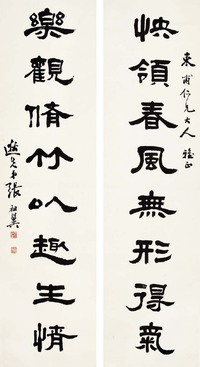 快領春風無形得氣
東甫仁兄大人雅正
樂觀脩竹以趣生情
張祖翼